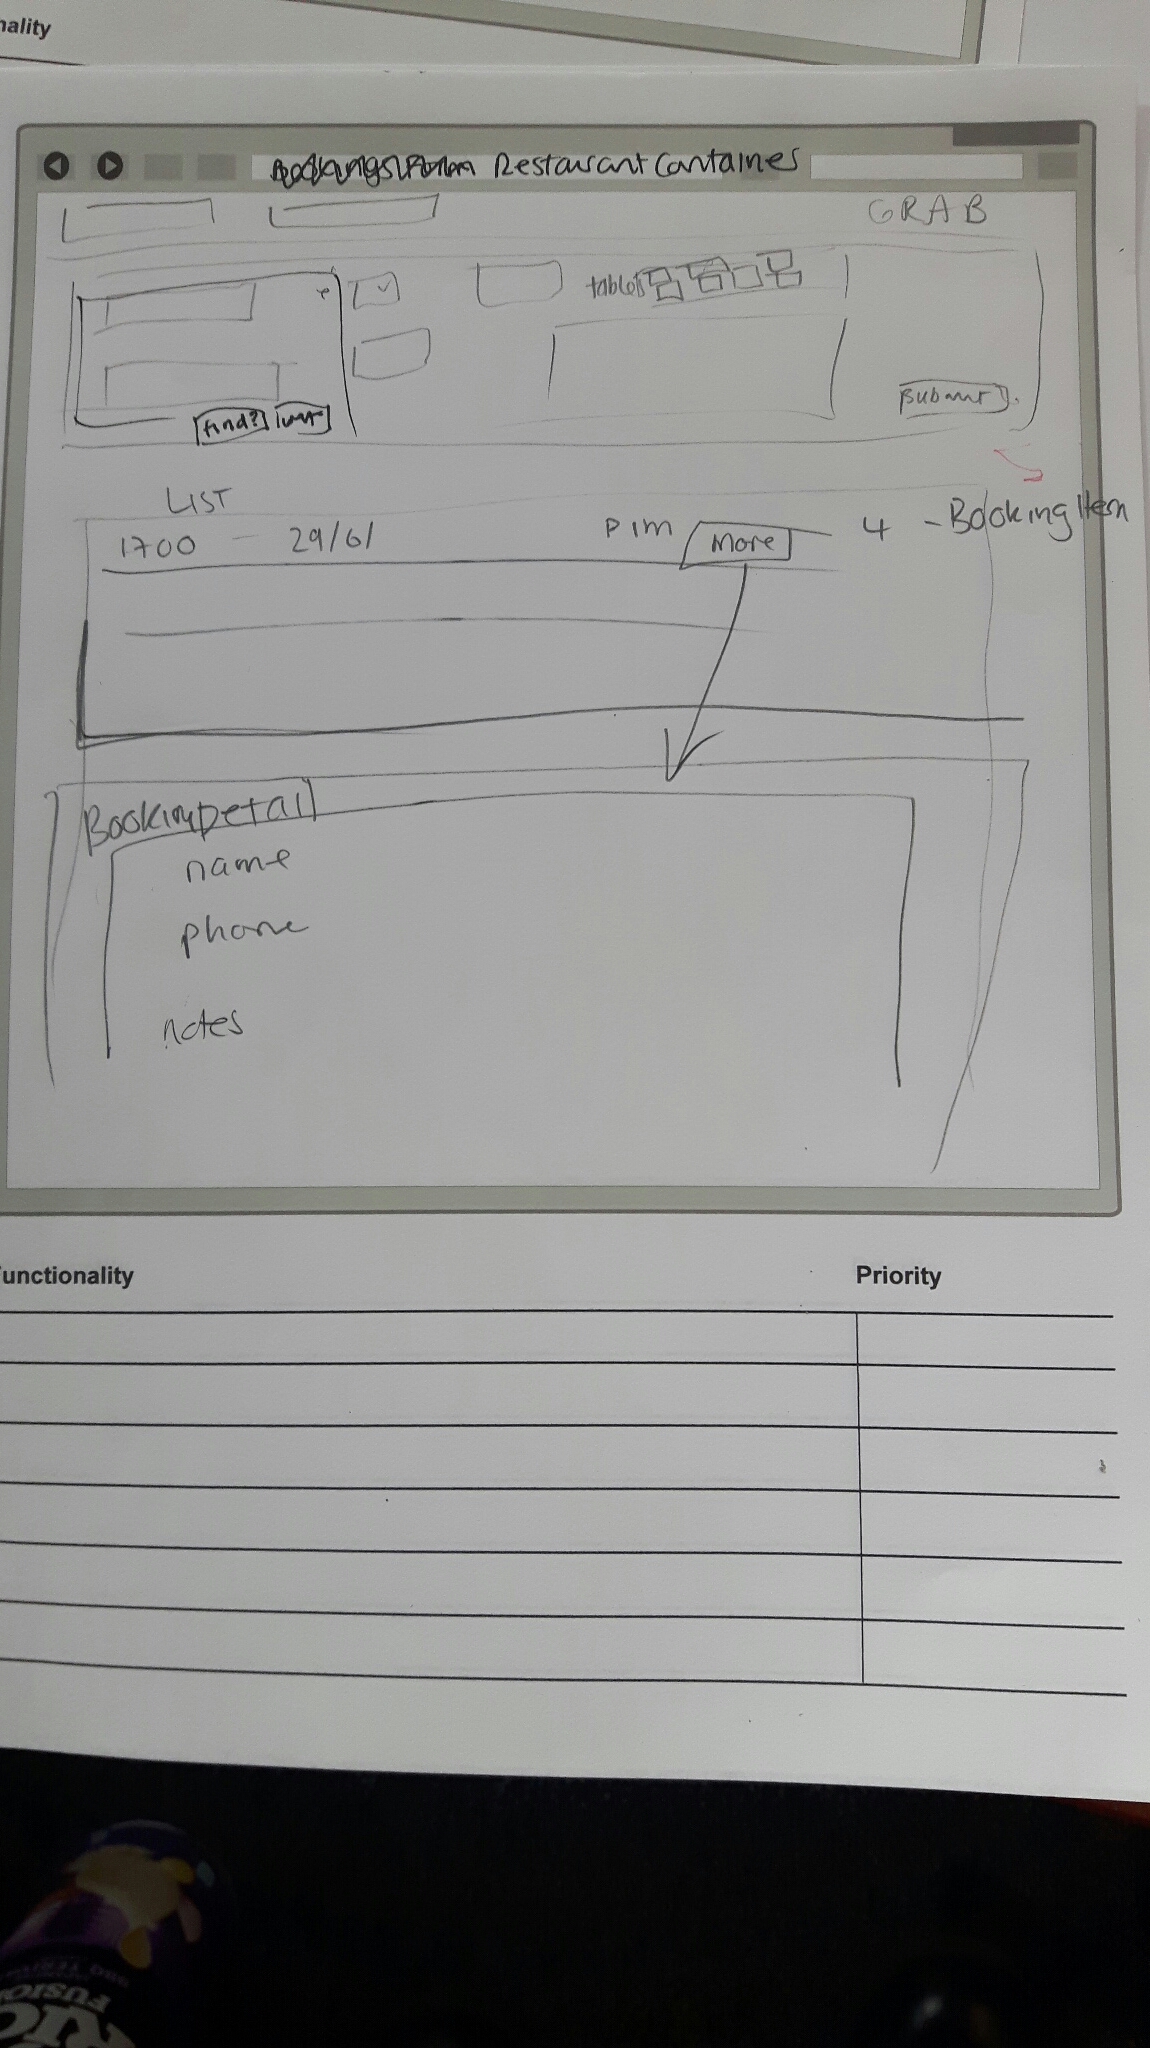 nality
Restaurant Container
GRAB
tables
find?
Submit
LIST
1700 - 29/61 Pim More 4 - Booking Item
BookingDetail
name
phone
notes
unctionality Priority
FUSIO